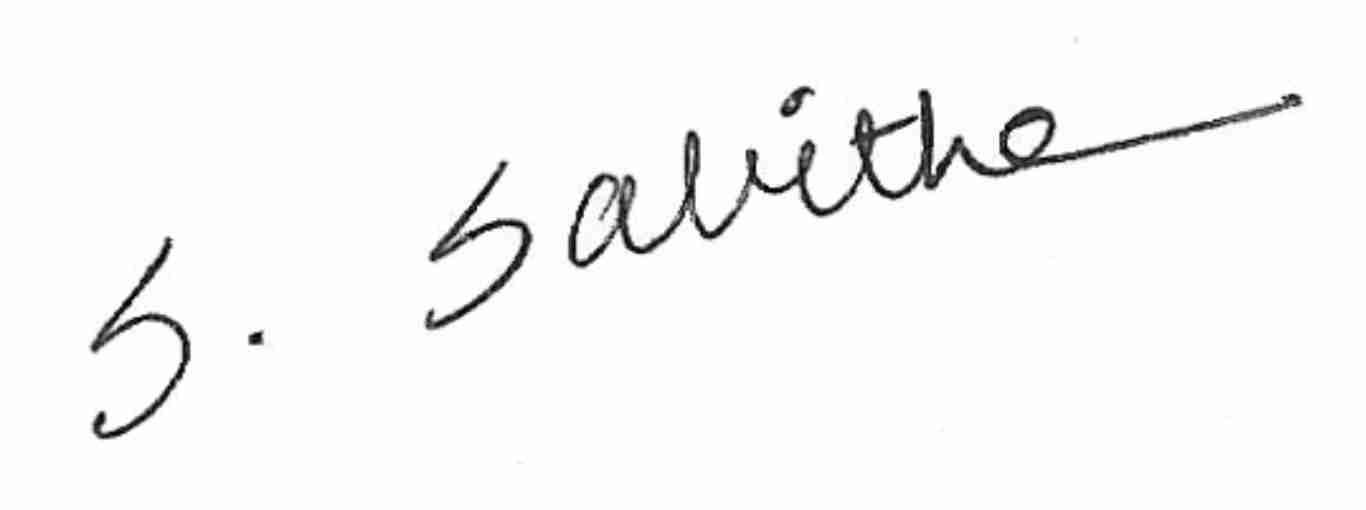 S. Sabitha